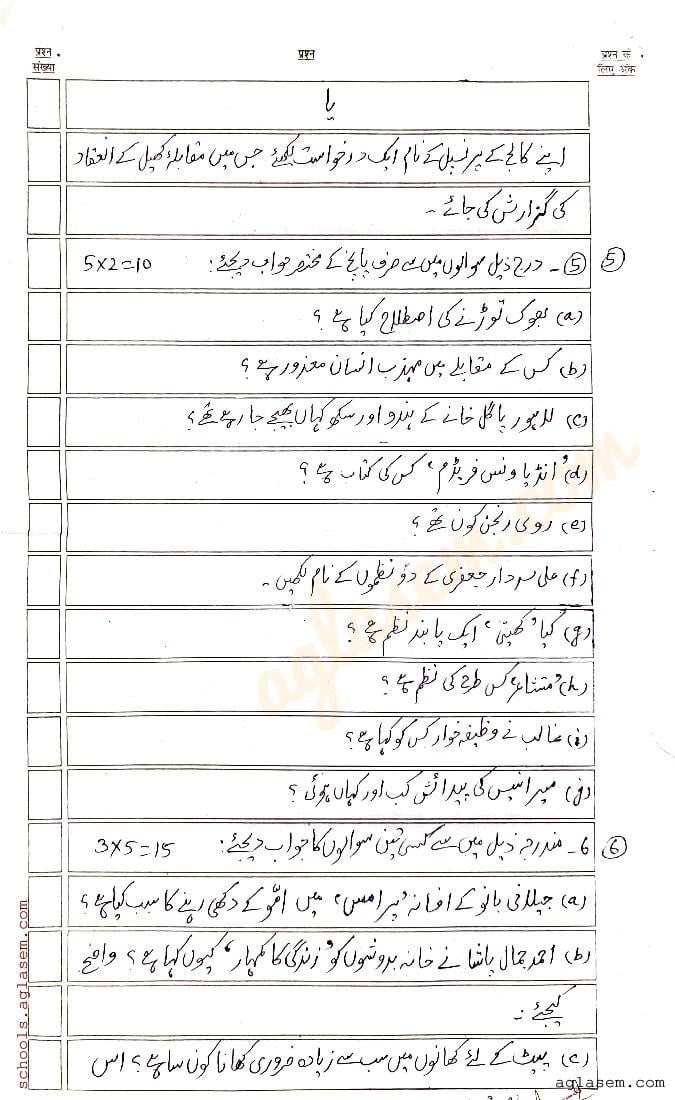 प्रश्न संख्या
प्रश्न
प्रश्न के लिए अंक
یا
اپنے کالج کے پرنسپل کے نام ایک درخواست لکھئے جس میں مقابلۂ کھیل کے انعقاد
کی گزارش کی جائے ۔
⑤ ۔ درج ذیل سوالوں میں سے صرف پانچ کے مختصر جواب دیجئے : 5×2=10
⑤
(a) بھوک توڑنے کی اصطلاح کیا ہے ؟
(b) کس کے مقابلے میں مہذب انسان معذور ہے ؟
(c) لاہور پاگل خانے کے ہندو اور سکھ کہاں بھیجے جا رہے تھے ؟
(d) 'انڈیا ونس فریڈم' کس کی کتاب ہے ؟
(e) روی رنجن کون تھے ؟
(f) علی سردار جعفری کے دو نظموں کے نام لکھیں ۔
(g) کیا 'کھیتی' ایک پابند نظم ہے ؟
(h) 'متشاعر' کس طرح کی نظم ہے ؟
(i) غالب نے وظیفہ خوار کس کو کہا ہے ؟
(j) میر انیس کی پیدائش کب اور کہاں ہوئی ؟
6 ۔ مندرجہ ذیل میں سے کسی تین سوالوں کا جواب دیجئے : 3×5=15
⑥
(a) جیلانی بانو کے افسانہ 'پرامس' میں امّو کے دکھی رہنے کا سبب کیا ہے ؟
(b) احمد جمال پاشا نے خانہ بدوشوں کو 'زندگی کا کمہار' کیوں کہا ہے ؟ واضح
کیجئے :
(c) پیٹ کے لئے کھانوں میں سب سے زیادہ ضروری کھانا کون سا ہے ؟ اس
aglasem.com
schools.aglasem.com
aglasem.com